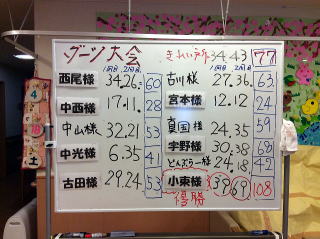 ダーツ大会
1回目 2回目
西尾様 34.26. 60
中西様 17.11. 28
中山様 32.21 53
中光様 6.35 41
古田様 29.24. 53
34.43 77
1回目 2回目
古川様 27.36. 63
宮本様 12.12 24
真国様 24.35 59
宇野様 30.38 68
とんぷう一様 24.18. 42
小東様 39 69 108
優勝
4
18
土